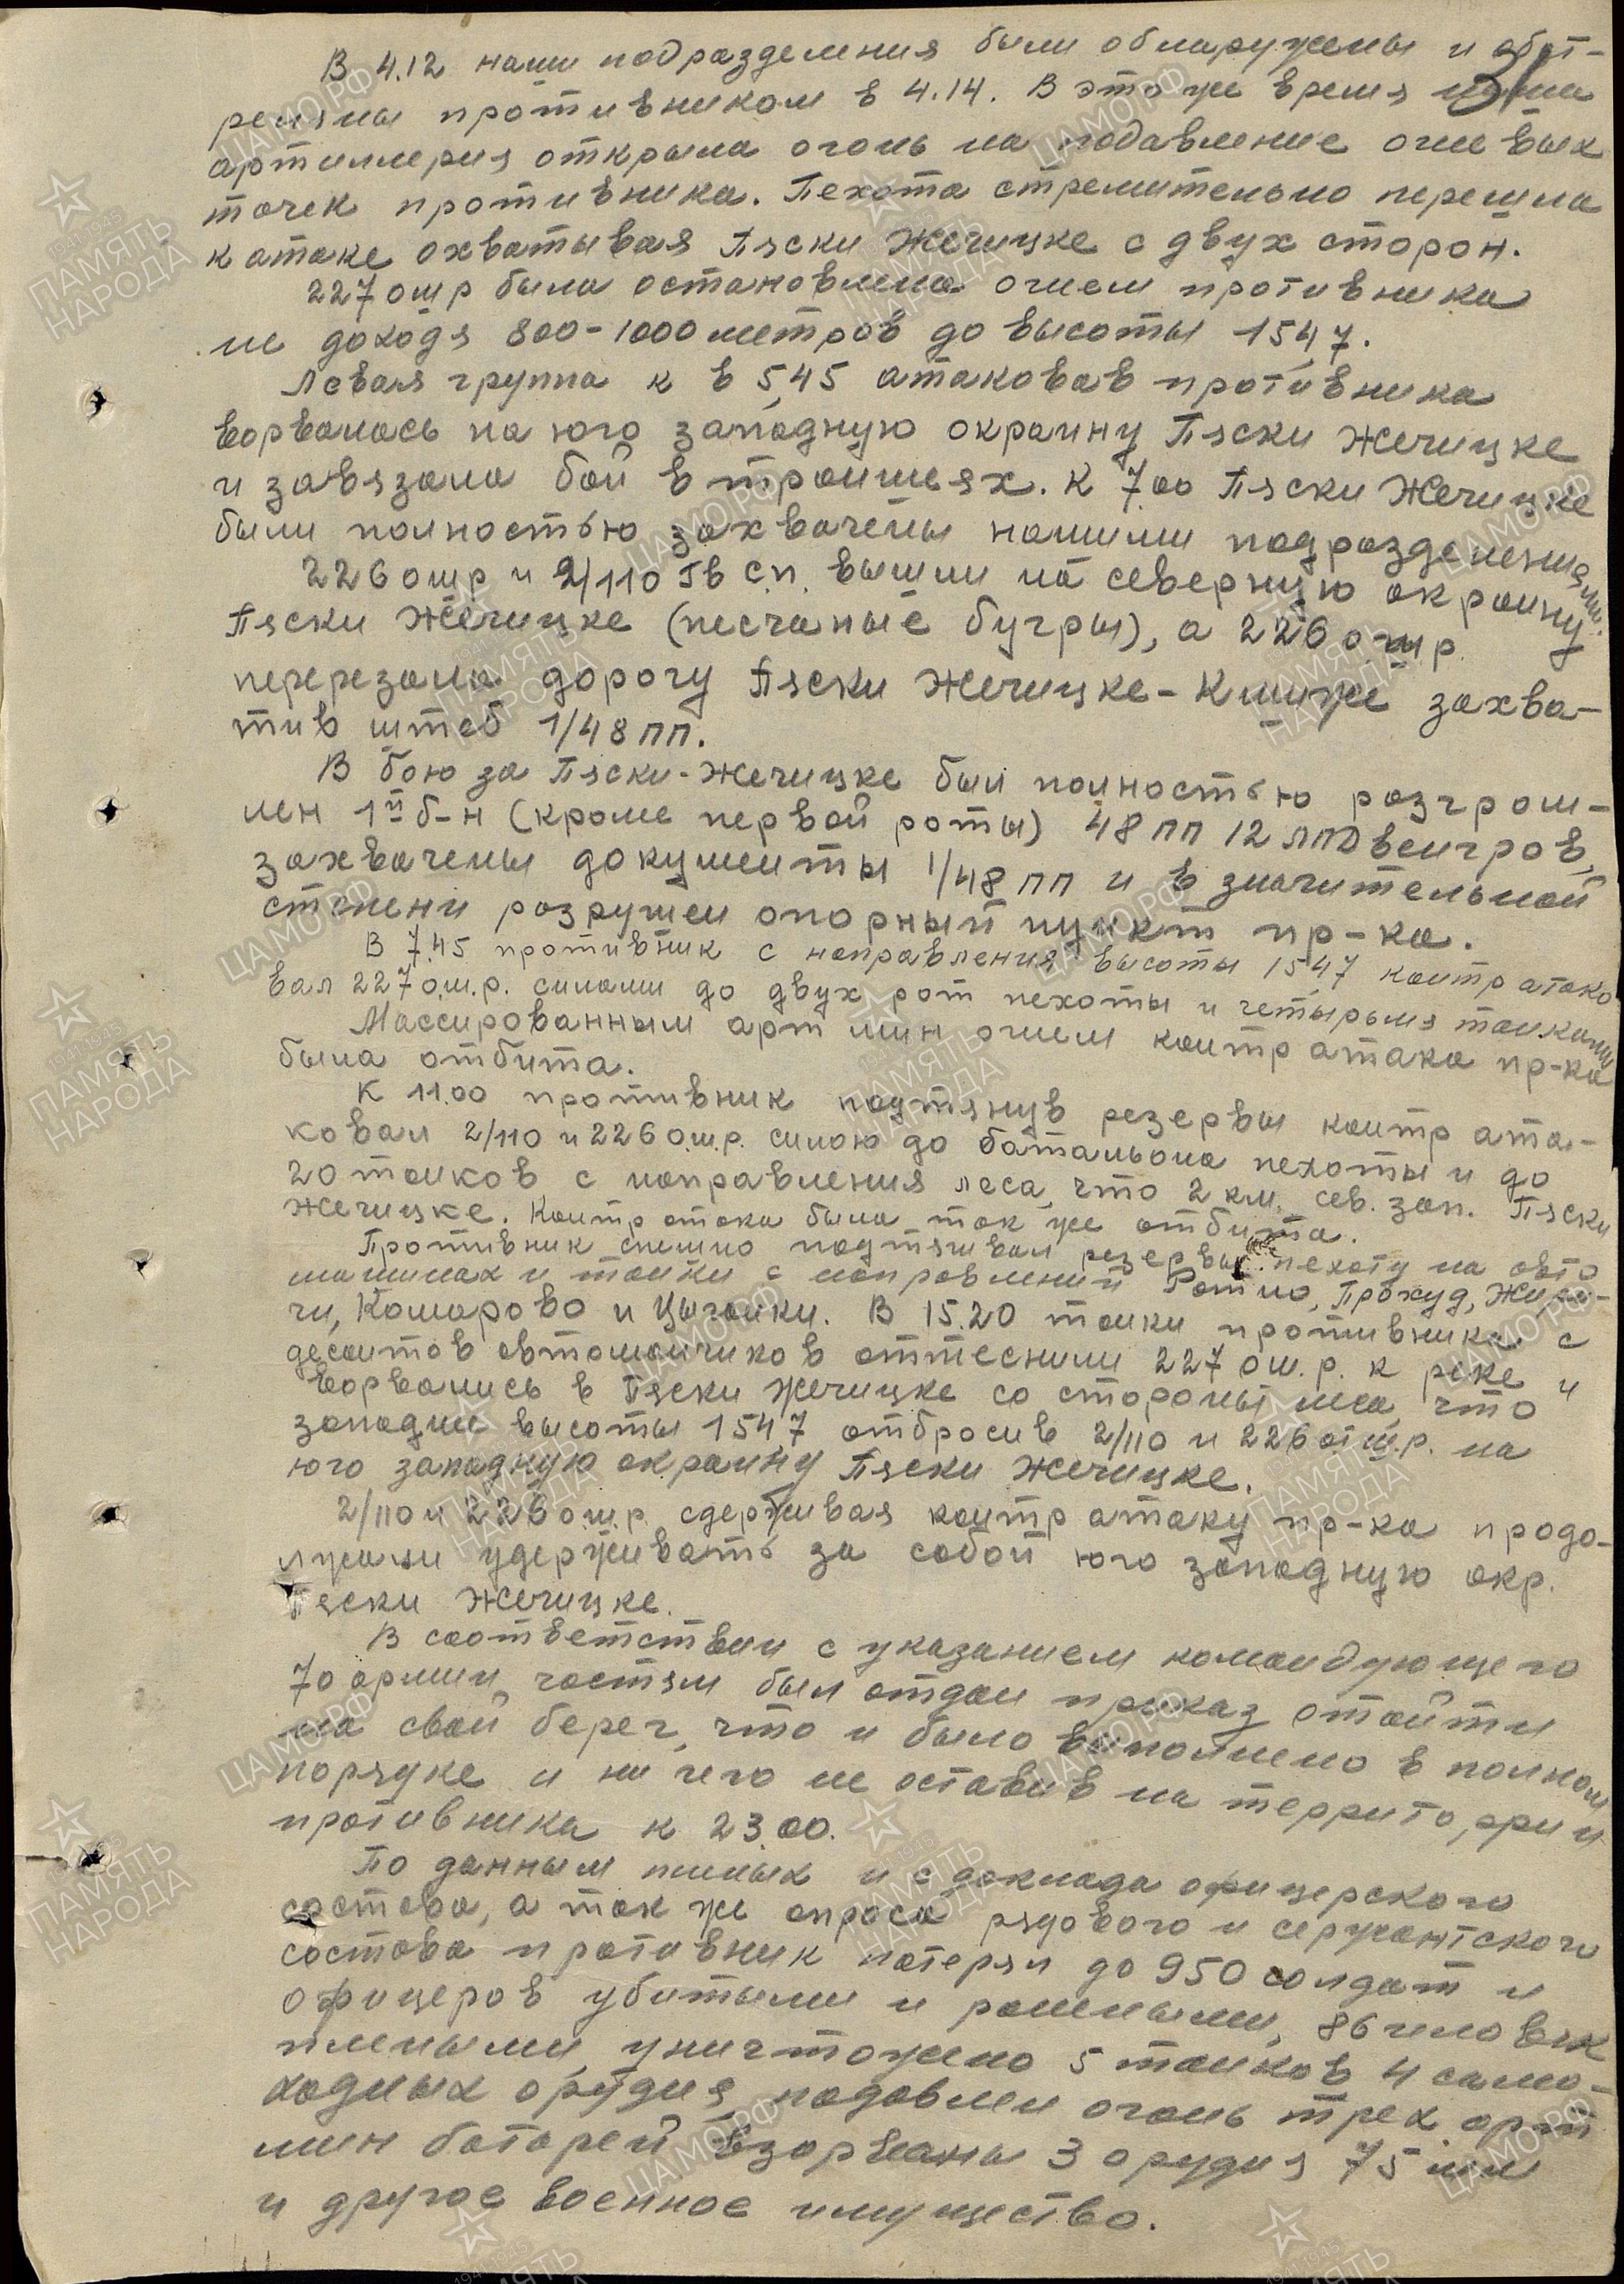 В 4.12 наши подразделения были обнаружены и обст-
реляны противником в 4.14. В это же время наша
артиллерия открыла огонь на подавление огневых
точек противника. Пехота стремительно перешла
к атаке охватывая Пяски Жечицке с двух сторон.
227 ошр была остановлена огнем противника
не доходя 800-1000 метров до высоты 154,7.
Левая группа к в 5,45 атаковав противника
ворвалась на юго западную окраину Пяски Жечицке
и завязала бой в траншеях. К 7.00 Пяски Жечицке
были полностью захвачены нашими подразделениями.
226 ошр и 2/110 Гв с.п. вышли на северную окраину
Пяски Жечицке (песчаные бугры), а 226 ошр
перерезала дорогу Пяски Жечицке-Клитже захва-
тив штаб 1/48 пп.
В бою за Пяски-Жечицке был полностью разгром-
лен 1й б-н (кроме первой роты) 48 пп 12 лпд венгров,
захвачены документы 1/48 пп и в значительной
степени разрушен опорный пункт пр-ка.
В 7.45 противник с направления высоты 154,7 контр атако
вал 227 о.ш.р. силами до двух рот пехоты и четырьмя танками
Массированным арт мин огнем контр атака пр-ка
была отбита.
К 11.00 противник подтянув резервы контр ата-
ковал 2/110 и 226 о.ш.р. силою до батальона пехоты и до
20 танков с направления леса, что 2 км. сев. зап. Пяски
Жечицке. Контр атака была так же отбита.
Противник спешно подтягивал резервы пехоту на авто
машинах и танки с направлений Ратно, Прохуд, Жири-
чи, Комарово и Цыганки. В 15.20 танки противника с
десантов автоматчиков оттеснили 227 ош.р. к реке и
ворвались в Пяски Жечицке со стороны леса, что
западнее высоты 1547 отбросив 2/110 и 226 ош.р. на
юго западную окраину Пяски Жечицке.
2/110 и 226 о.ш.р. сдерживая контр атаку пр-ка продо-
лжали удерживать за собой юго западную окр.
Пяски Жечицке.
В соответствии с указанием командующего
70 армии, частям был отдан приказ отойти
на свой берег, что и было выполнено в полном
порядке и ни чего не оставив на территории
противника к 23.00.
По данным пленых и с доклада офицерского
состава, а так же опроса рядового и сержантского
состава противник потерял до 950 солдат и
офицеров убитыми и ранеными, 86 человек
пленными, уничтожено 5 танков 4 само-
ходных орудия, подавлен огонь трех арт
мин батарей взорваны 3 орудия 75 мм
и другое военное имущество.